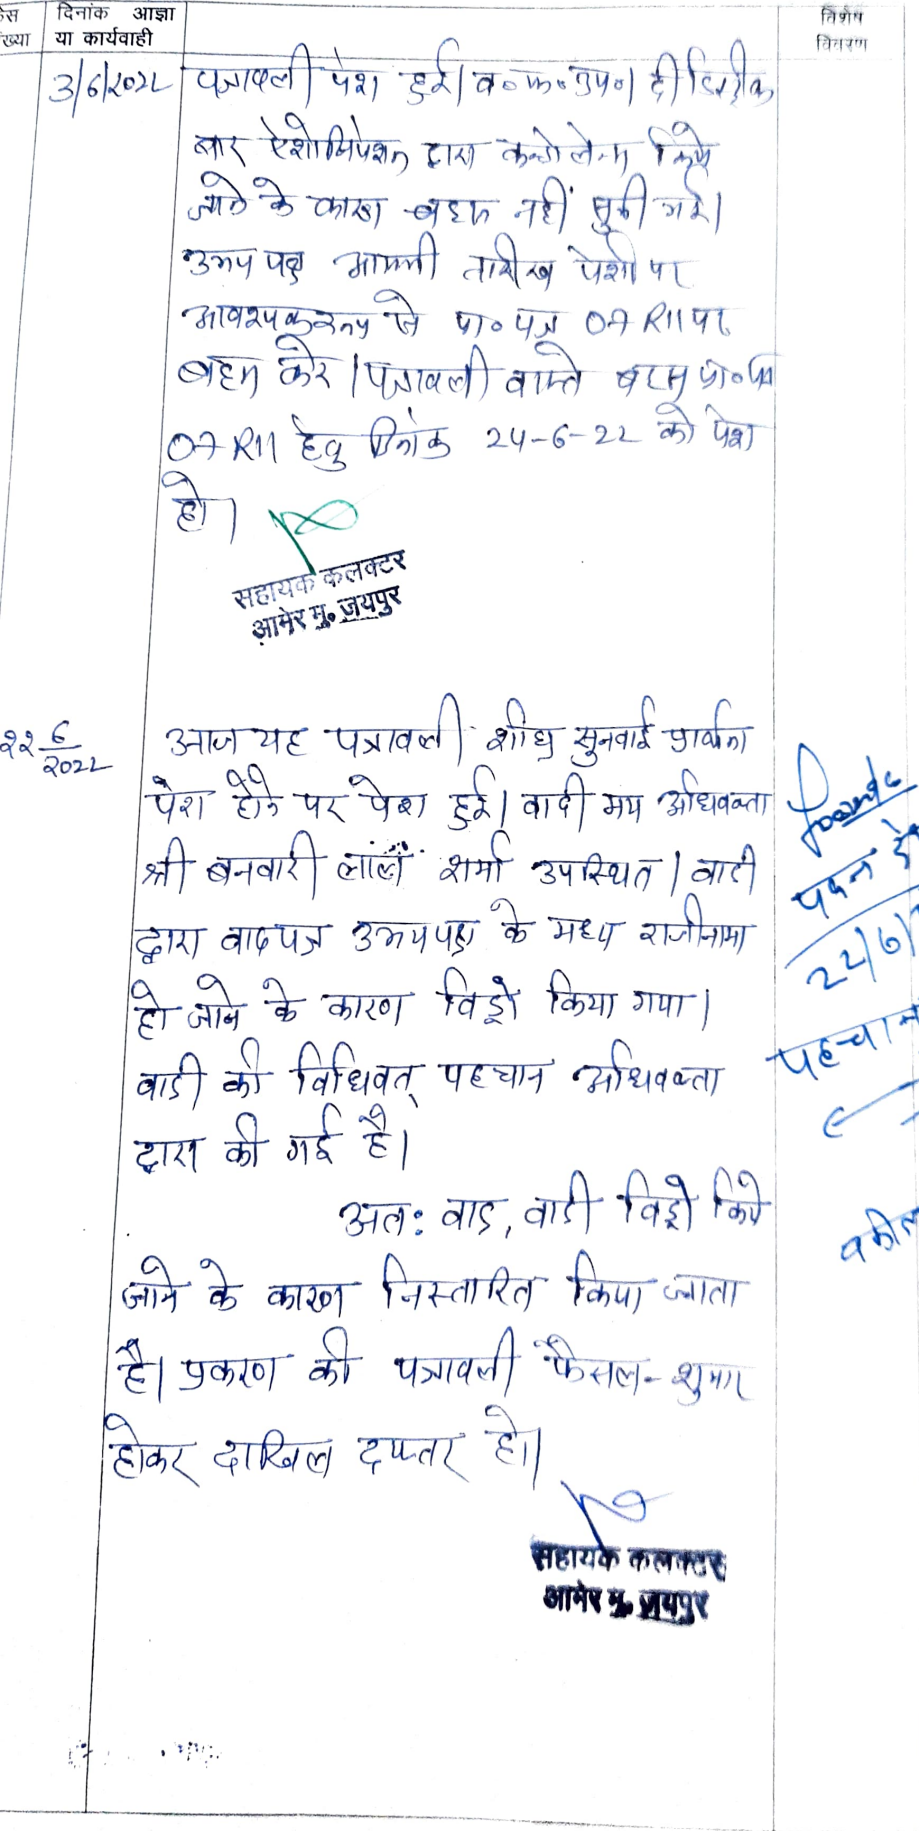 दिनांक आज्ञा
या कार्यवाही
विशेष
विवरण
3/6/2022 पत्रावली पेश हुई। व०फ०उप०। दी डिस्ट्रीक
बार ऐशोसियेशन द्वारा कन्डोलेन्स किये
जाने के कारण बहस नहीं सुनी गई।
उभय पक्ष आगामी तारीख पेशी पर
आवश्यक रूप से प्रा० पत्र 07 R11 पर
बहस करे। पत्रावली वास्ते बहस प्रा० पत्र
07 R11 हेतु दिनांक 24-6-22 को पेश
हो।
सहायक कलक्टर
आमेर मु० जयपुर
22 6/2022 आज यह पत्रावली शीघ्र सुनवाई प्रार्थना
पेश होने पर पेश हुई। वादी मय अधिवक्ता
श्री बनवारी लाल शर्मा उपस्थित। वादी
द्वारा वादपत्र उभयपक्ष के मध्य राजीनामा
हो जाने के कारण विड्रो किया गया।
वादी की विधिवत् पहचान अधिवक्ता
द्वारा की गई है।
अतः वाद, वादी विड्रो किये
जाने के कारण निस्तारित किया जाता
है। प्रकरण की पत्रावली फैसल-शुमार
होकर दाखिल दफ्तर हो।
सहायक कलक्टर
आमेर मु० जयपुर
22/6/
पहचान
वकील